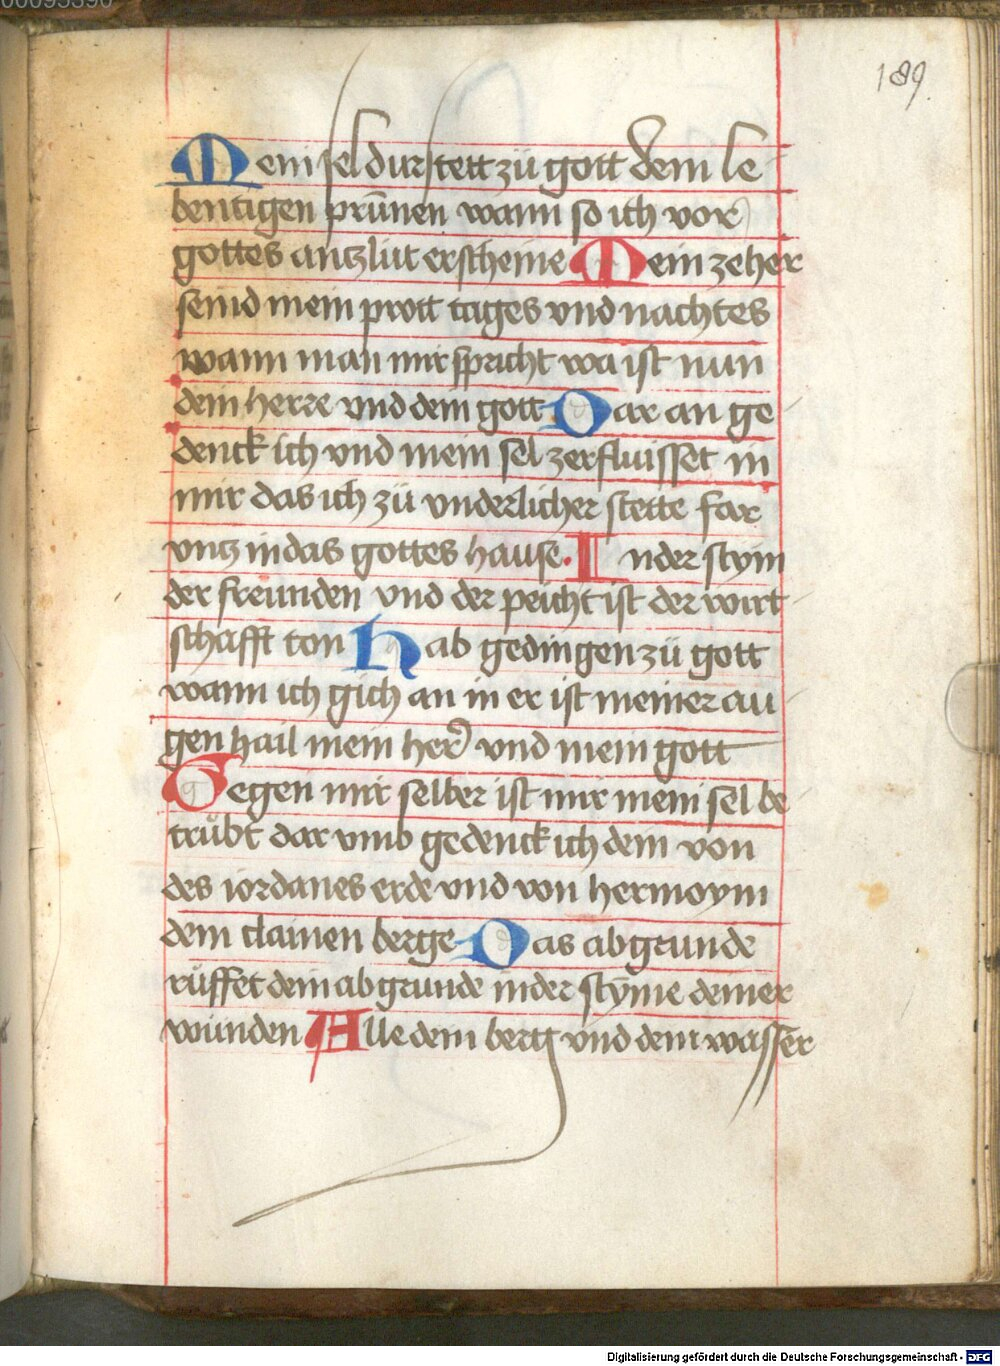 189
Mein sel durstett zü gott dem le
bentigen prünen wann so ich vor
gottes antzlüt erscheine Mein zeher
seind mein prott tages vnd nachtes
wann man mir spricht wa ist nun
dein herre vnd dein gott Dar an ge
denck ich vnd mein sel zerfluisset in
mir das ich zü vnderlicher stette far
vntz in das gottes hause. In der stym
der freunden vnd der peicht ist der wirt
schafft ton Hab gedingen zü gott
wann ich gich an in er ist meiner au
gen hail mein her vnd mein gott
Gegen mir selber ist mir mein sel be
trübt dar vmb gedenck ich dein von
des iordanes erde vnd von hermoym
dem clainen berge Das abgrunde
rüffet dem abgrunde in der styme deiner
wunden Alle dein berg vnd dein wasser
Digitalisierung gefördert durch die Deutsche Forschungsgemeinschaft - DFG